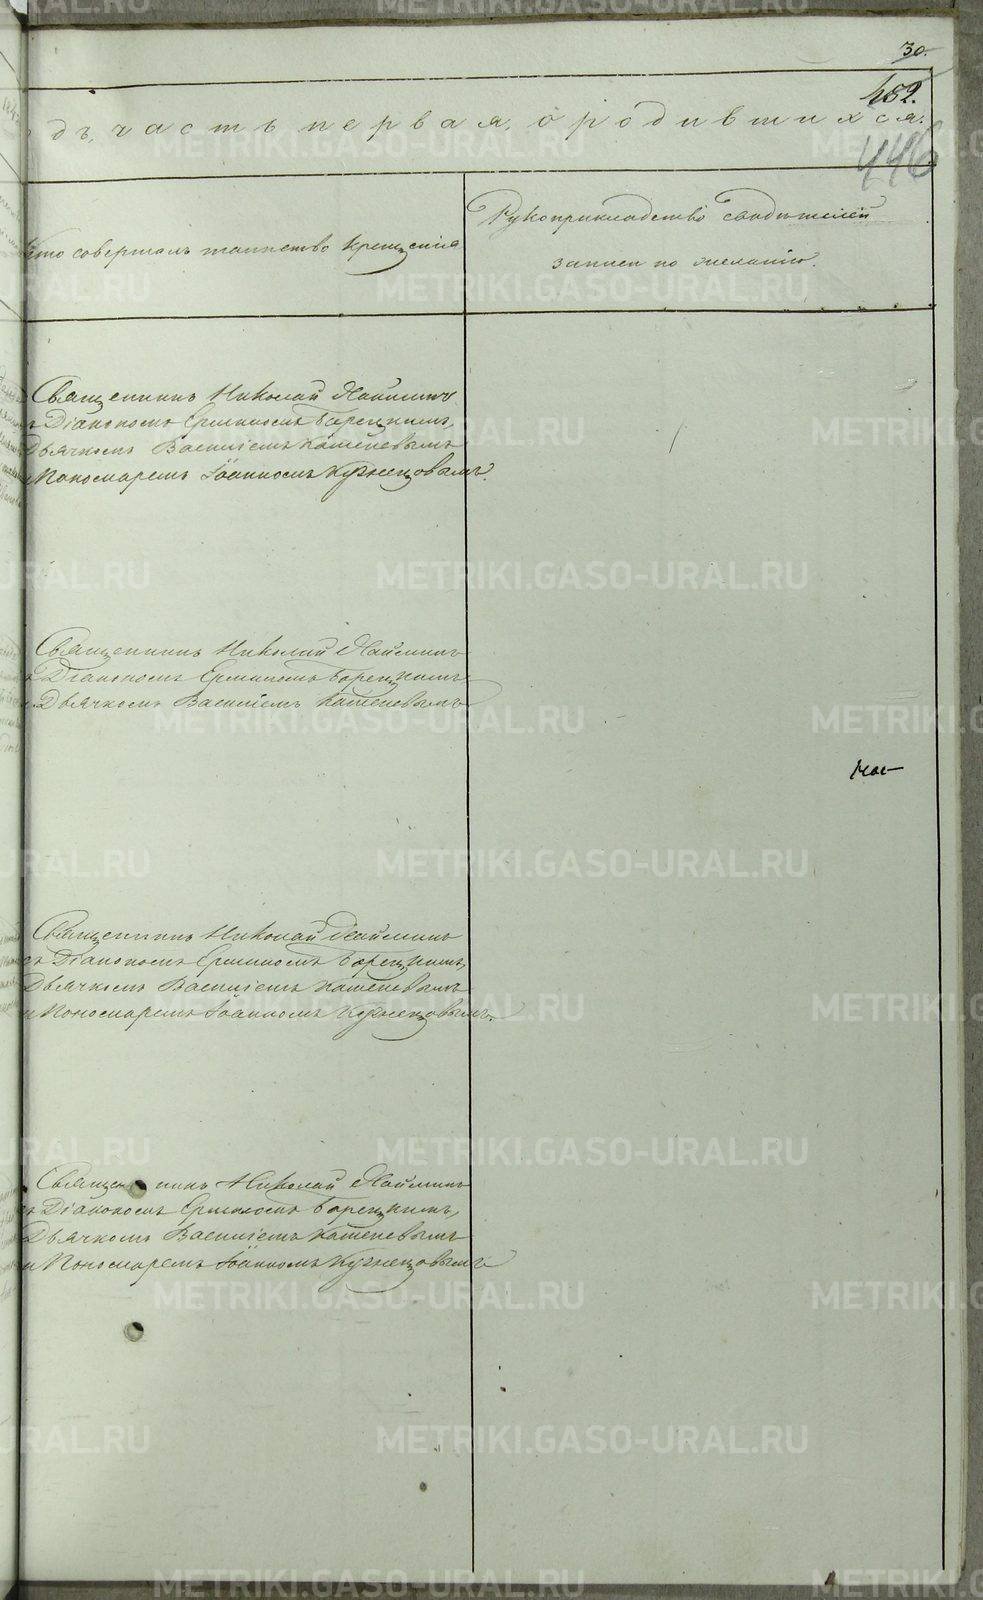 30.
452.
дъ, часть первая, о родившихся.
446
Кто совершалъ таинство крещенія
Рукоприкладство свидѣтелей
записи по желанію.
Священникъ Николай
съ Діакономъ Ермиломъ Борецкимъ,
Дьячкомъ Василіемъ Кошеневымъ
и Пономаремъ Іоанномъ Кузнецовымъ.
Священникъ Николай
съ Діакономъ Ермиломъ Борецкимъ
и Дьячкомъ Василіемъ Кошеневымъ
Священникъ Николай
съ Діакономъ Ермиломъ Борецкимъ,
Дьячкомъ Василіемъ Кошеневымъ
и Пономаремъ Іоанномъ Кузнецовымъ.
Священникъ Николай
съ Діакономъ Ермиломъ Борецкимъ,
Дьячкомъ Василіемъ Кошеневымъ
и Пономаремъ Іоанномъ Кузнецовымъ
METRIKI.GASO-URAL.RU